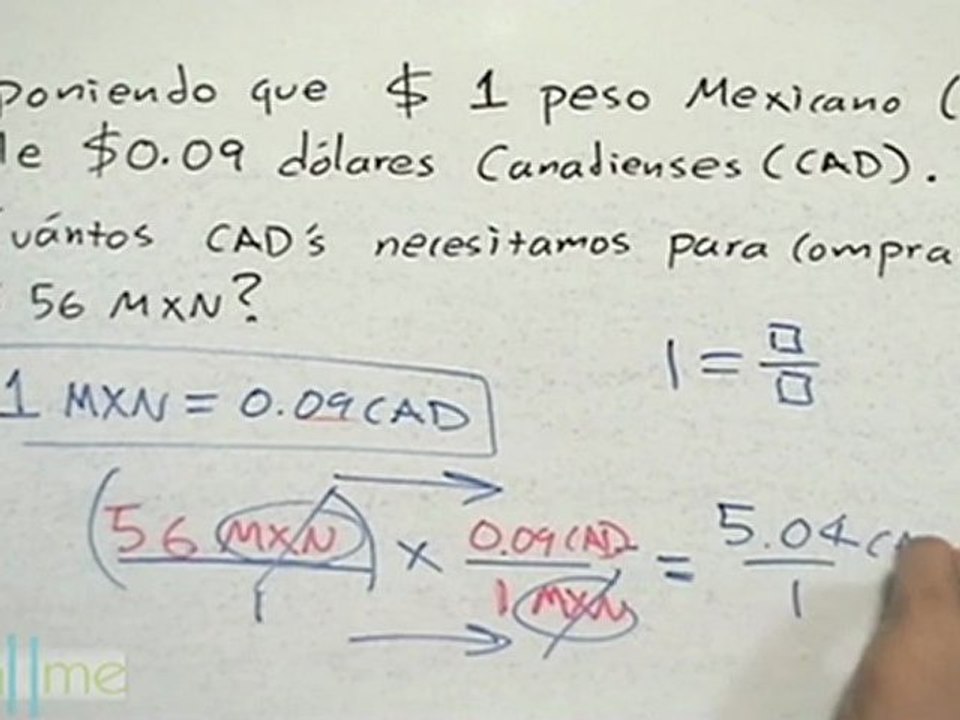 poniendo que $ 1 peso Mexicano (
le $0.09 dólares Canadienses (CAD).
uántos CAD's necesitamos para compra
56 MXN?
1 = □/□
1 MXN = 0.09 CAD
(56 MXN / 1) × 0.09 CAD / 1 MXN = 5.04 / 1
me